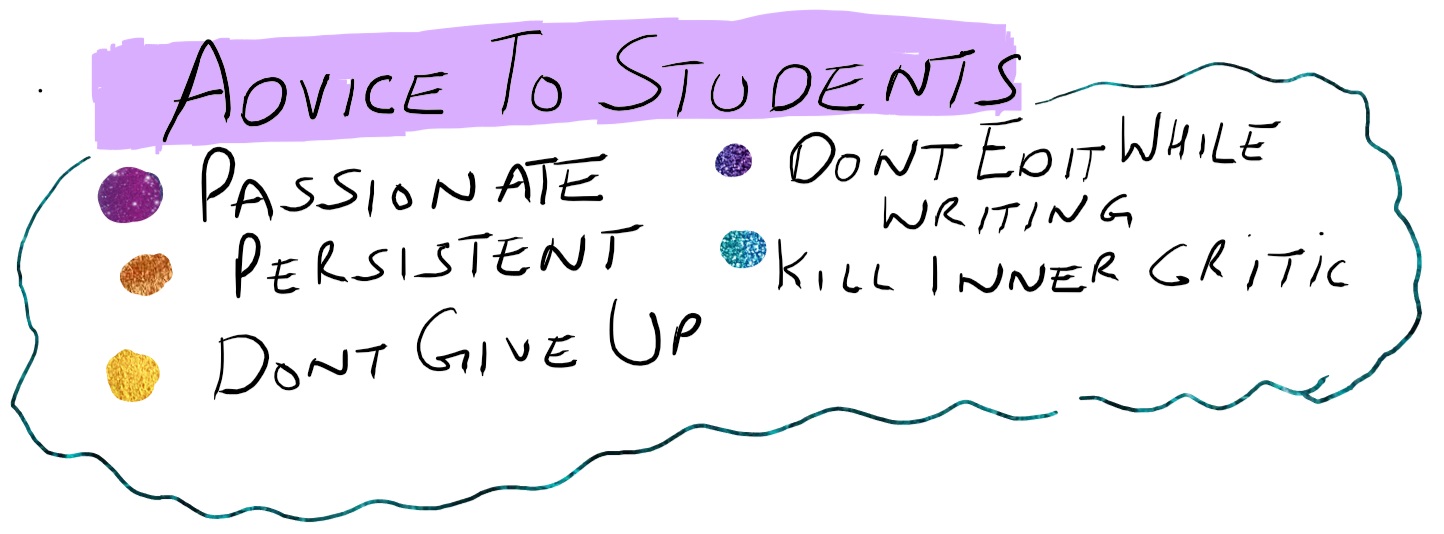 ADVICE TO STUDENTS
PASSIONATE
PERSISTENT
DONT GIVE UP
DONT EDIT WHILE
WRITING
KILL INNER CRITIC